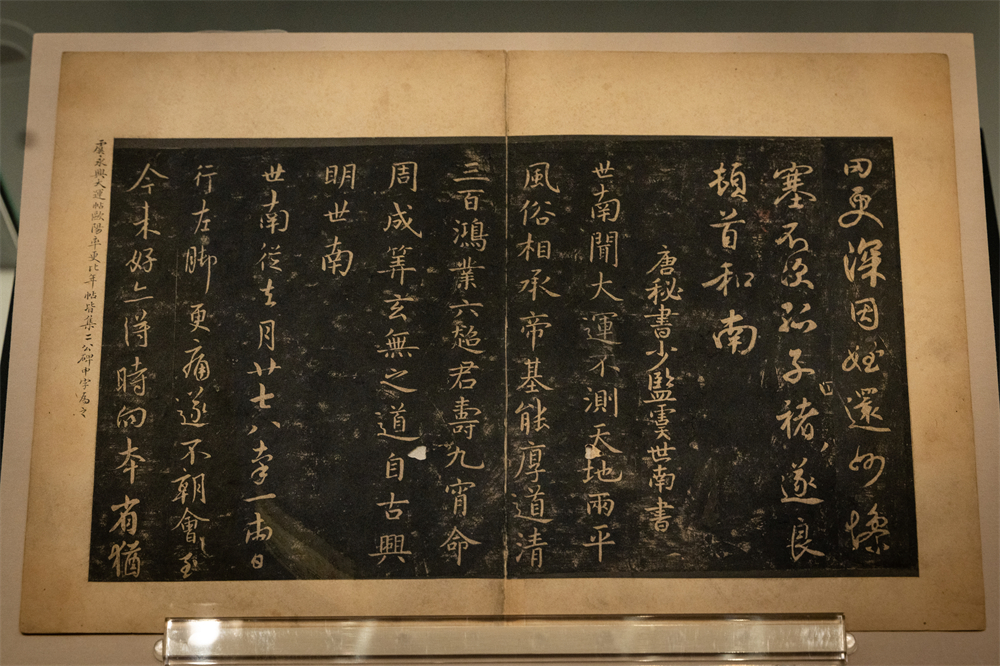 罔更深因姪還州慘
塞不次孤子褚遂良
頓首和南
唐秘書少監虞世南書
世南聞大運不測天地兩平
風俗相承帝基能厚道清
三百鴻業六超君壽九宵命
周成筭玄無之道自古興
明世南
世南從去月廿七八率一兩日
行左脚更痛遂不朝會至
今未好亦得時向本省猶
虞永興大運帖歐陽率更比年帖皆集二公碑中字為之